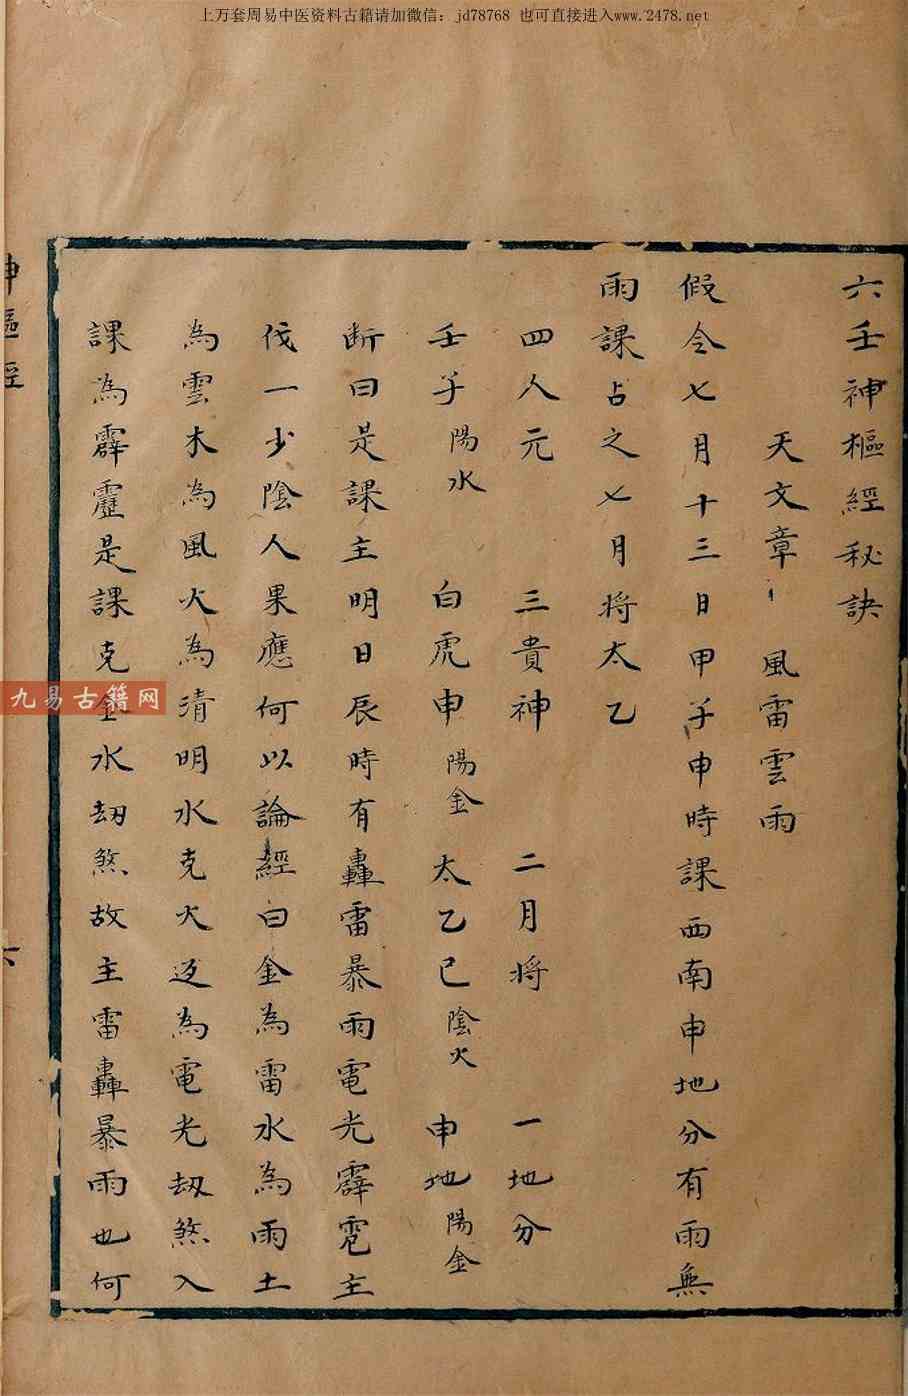 上万套周易中医资料古籍请加微信：jd78768 也可直接进入www.2478.net
六壬神樞經秘訣
天文章 風雷雲雨
假令七月十三日甲子申時課西南申地分有雨無
雨課占之七月将太乙
四人元 三貴神 二月将 一地分
壬子陽水 白虎申陽金 太乙巳陰火 申地陽金
断曰是課主明日辰時有轟雷暴雨電光霹雹主
伐一少陰人果應何以論經曰金為雷水為雨土
為雲木為風火為清明水克火迊為電光刼煞入
課為霹靂是課克金水刼煞故主雷轟暴雨也何
神樞經
六
九易古籍网